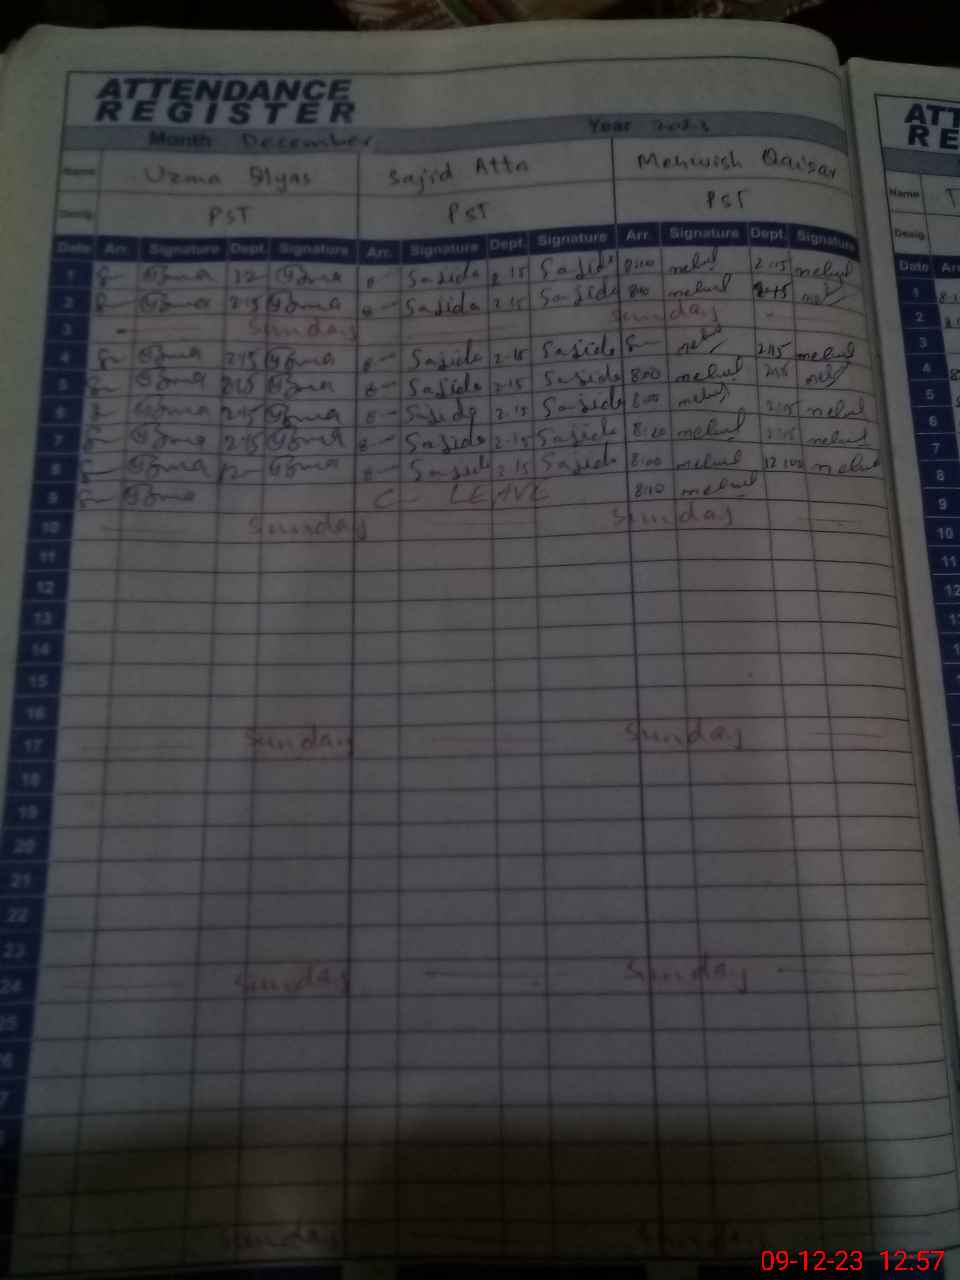 ATTENDANCE
REGISTER
Month December Year 2023
Name Uzma Ilyas Sajid Atta Mehwish Qaisar
Desig. PST PST PST
Date Arr. Signature Dept. Signature Arr. Signature Dept. Signature Arr. Signature Dept. Signature
1 8- Uzma 12- Uzma 8- Sajida 2:15 Sajida 8:00 mehwl 2:15 mehwl
2 8- Uzma 2:15 Uzma 8- Sajida 2:15 Sajida 8:00 mehwl 2:15
3 - Sunday Sunday -
4 8- Uzma 2:15 Uzma 8- Sajida 2:15 Sajida 8- 2:15 mehwl
5 8- Uzma 2:15 Uzma 8- Sajida 2:15 Sajida 8:00 mehwl 2:15
6 8- Uzma 2:15 Uzma 8- Sajida 2:15 Sajida 8:00 2:15 mehwl
7 8- Uzma 2:15 Uzma 8- Sajida 2:15 Sajida 8:00 mehwl 2:15 mehwl
8 8- Uzma 12- Uzma 8- Sajida 2:15 Sajida 8:00 mehwl 12:00 mehwl
9 8- Uzma C- LEAVE 8:00 mehwl
10 Sunday Sunday
11
12
13
14
15
16
17 Sunday Sunday
18
19
20
21
22
23
24 Sunday Sunday
25
26
7
8
Sunday Sunday
ATT
RE
Name T
Desig.
Date Ar
1
2
3
4
5
6
7
8
9
10
11
12
09-12-23 12:57